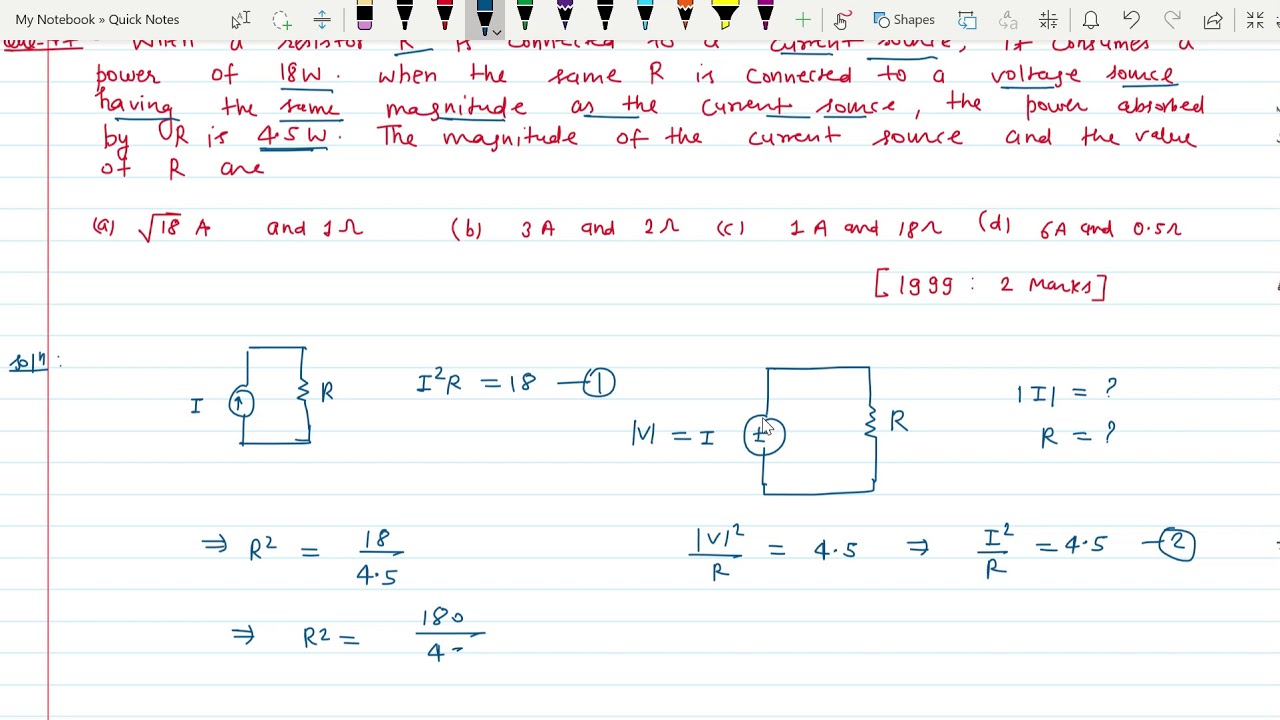 My Notebook » Quick Notes
Shapes
When a resistor R is connected to a current source, it consumes a
power of 18W. when the same R is connected to a voltage source
having the same magnitude as the current source, the power absorbed
by R is 4.5W. The magnitude of the current source and the value
of R are
(a) √18 A and 1Ω (b) 3A and 2Ω (c) 1A and 18Ω (d) 6A and 0.5Ω
[1999: 2 Marks]
solⁿ:
I R I²R = 18 —① |V| = I ± R |I| = ?
R = ?
⇒ R² = 18/4.5 |V|²/R = 4.5 ⇒ I²/R = 4.5 —②
⇒ R² = 180/4